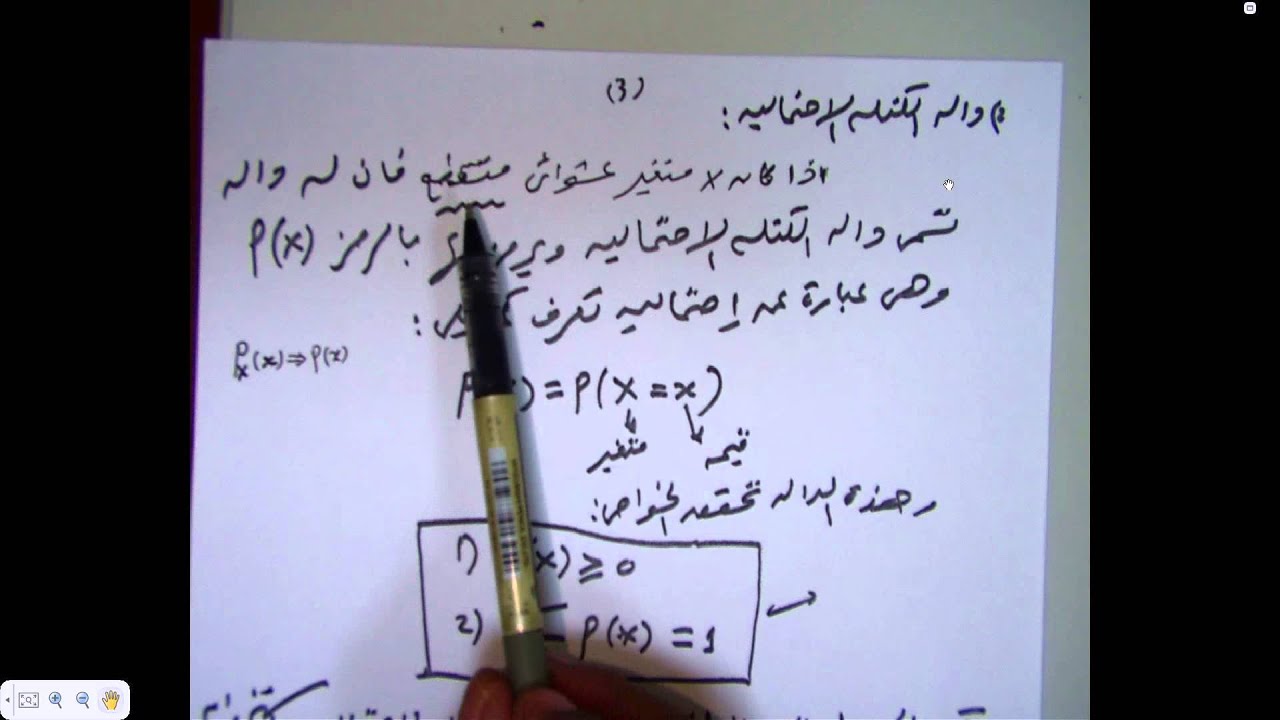 (3)
دالة الكتله الإحتماليه :
اذا كان x متغير عشوائي متقطع فان له داله
تسمى داله الكتله الإحتماليه ويرمز بالرمز P(x)
وهي عبارة عن إحتماليه تعرف :
P_X(x) ⇒ P(x)
) = P(X = x)
متغير قيمه
وهذة الداله تحقق الخواص:
1) (x) ≥ 0
2) P(x) = 1